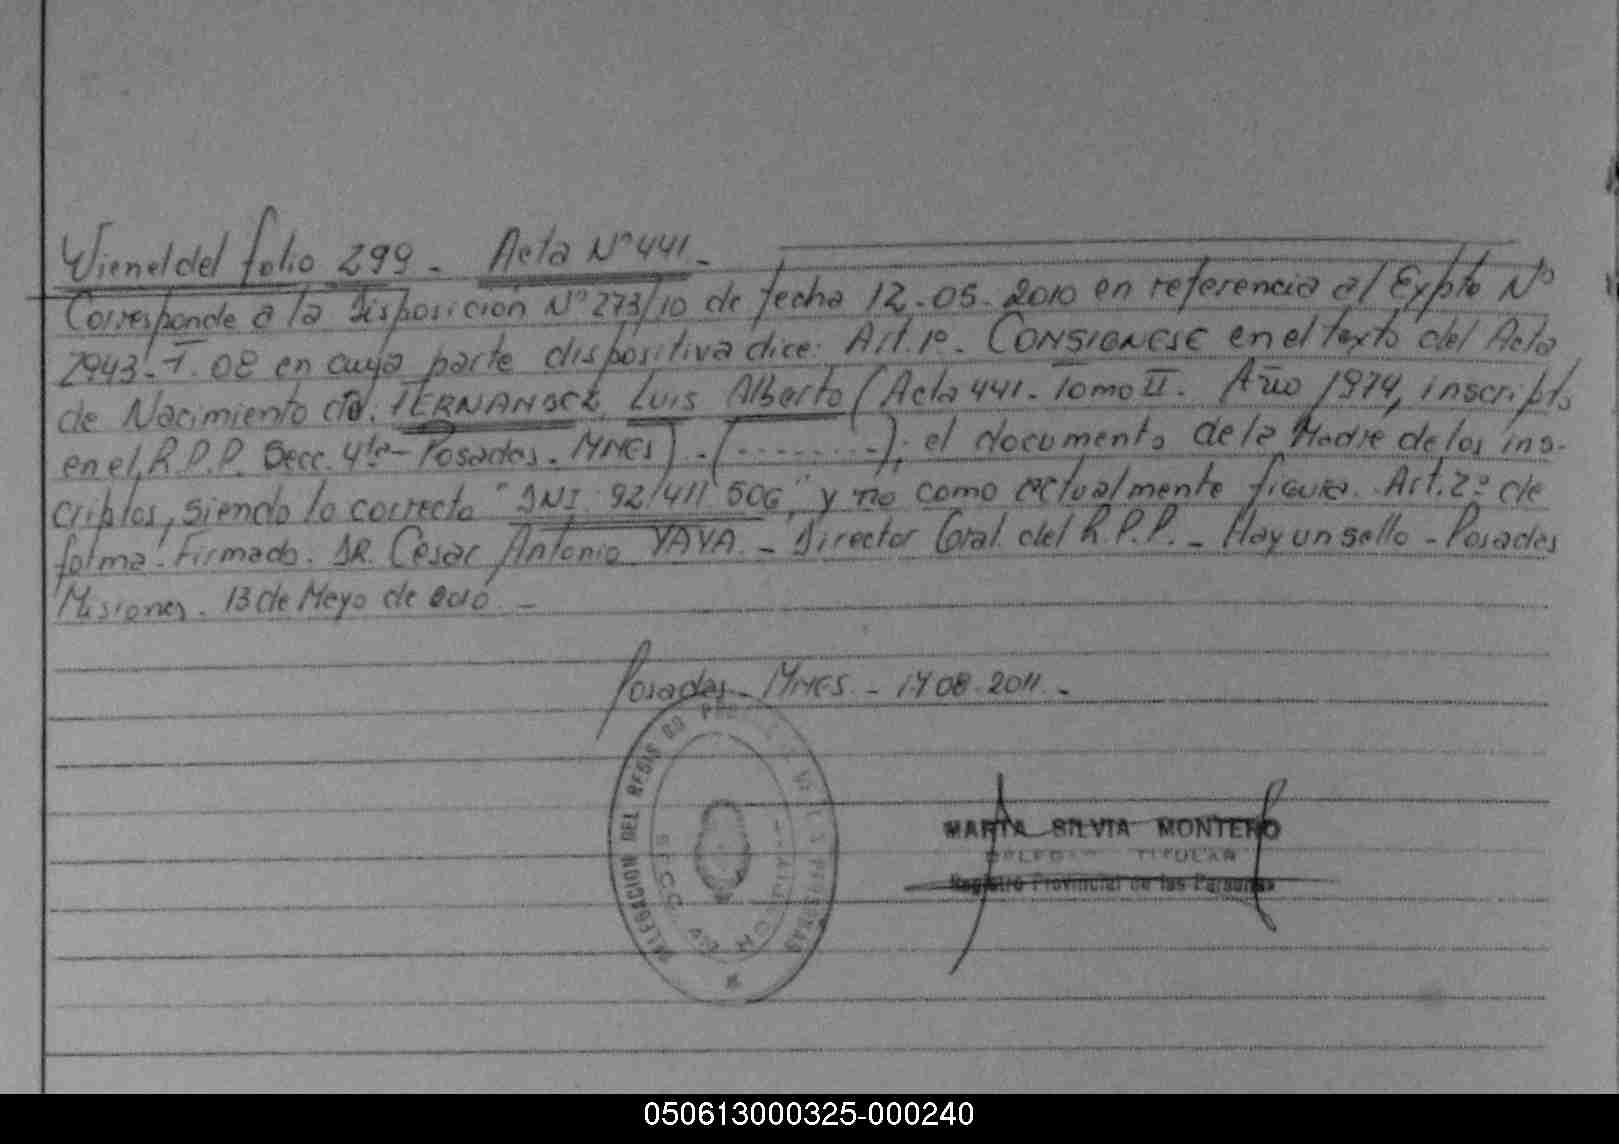 Viene del folio 299 - Acta Nº 441.-
Corresponde a la Disposición Nº 273/10 de fecha 12-05-2010 en referencia al Expte Nº
2943-I-08 en cuya parte dispositiva dice: Art. 1º- CONSIGNESE en el texto del Acta
de Nacimiento de: FERNANDEZ, Luis Alberto (Acta 441- Tomo II. Año 1974, inscripto
en el R.P.P. Secc. 4ta- Posadas. MNES).-(.........); el documento de la Madre de los ins-
criptos, siendo lo correcto "DNI. 92/411 506" y no como actualmente figura. Art. 2º de
forma. Firmado. DR. Cesar Antonio YAYA.- Director Gral. del R.P.P.- Hay un sello - Posadas
Misiones. 13 de Mayo de 2010.-
Posadas- MNES.- 17.08.2011.-
DELEGACION DEL REGISTRO DE LAS PERSONAS
SECC.
MARTA SILVIA MONTERO
TITULAR
Registro Provincial de las Personas
050613000325-000240